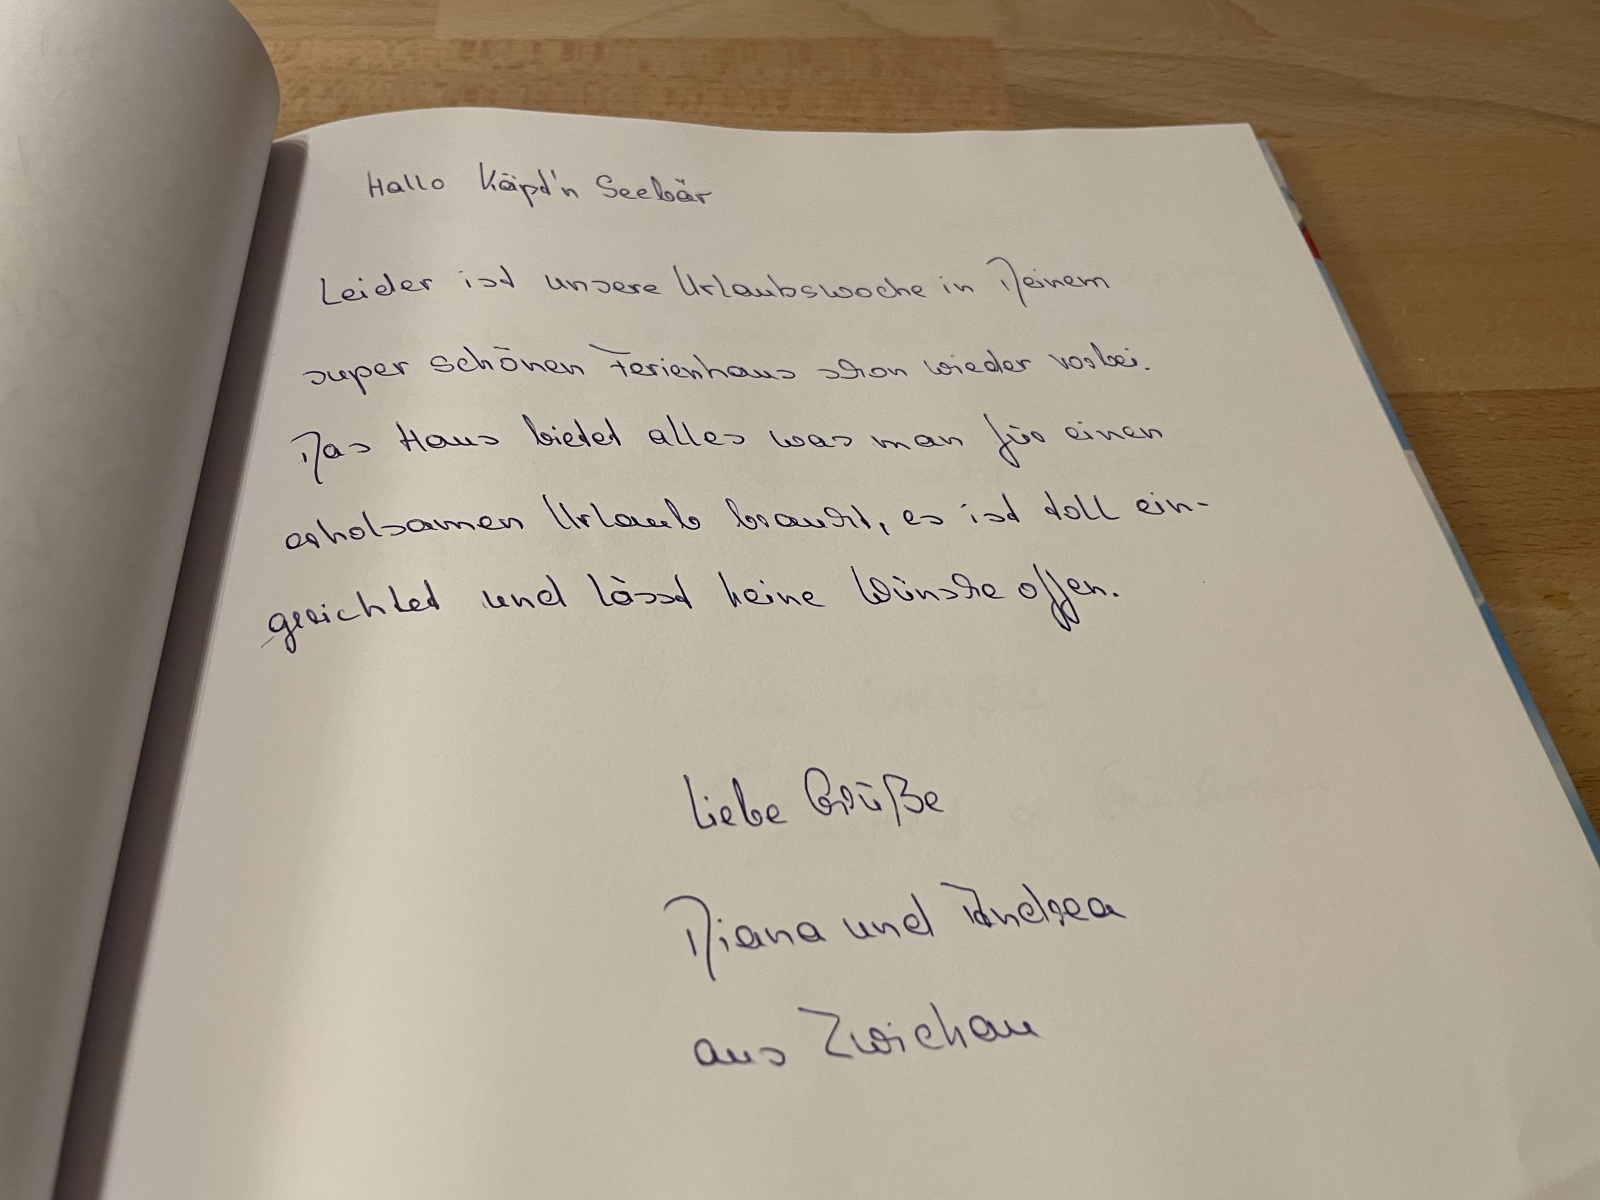 Hallo Käpt'n Seebär
Leider ist unsere Urlaubswoche in Deinem
super schönen Ferienhaus schon wieder vorbei.
Das Haus bietet alles was man für einen
erholsamen Urlaub braucht, es ist toll ein-
gerichtet und lässt keine Wünsche offen.
Liebe Grüße
Diana und Andrea
aus Zwickau